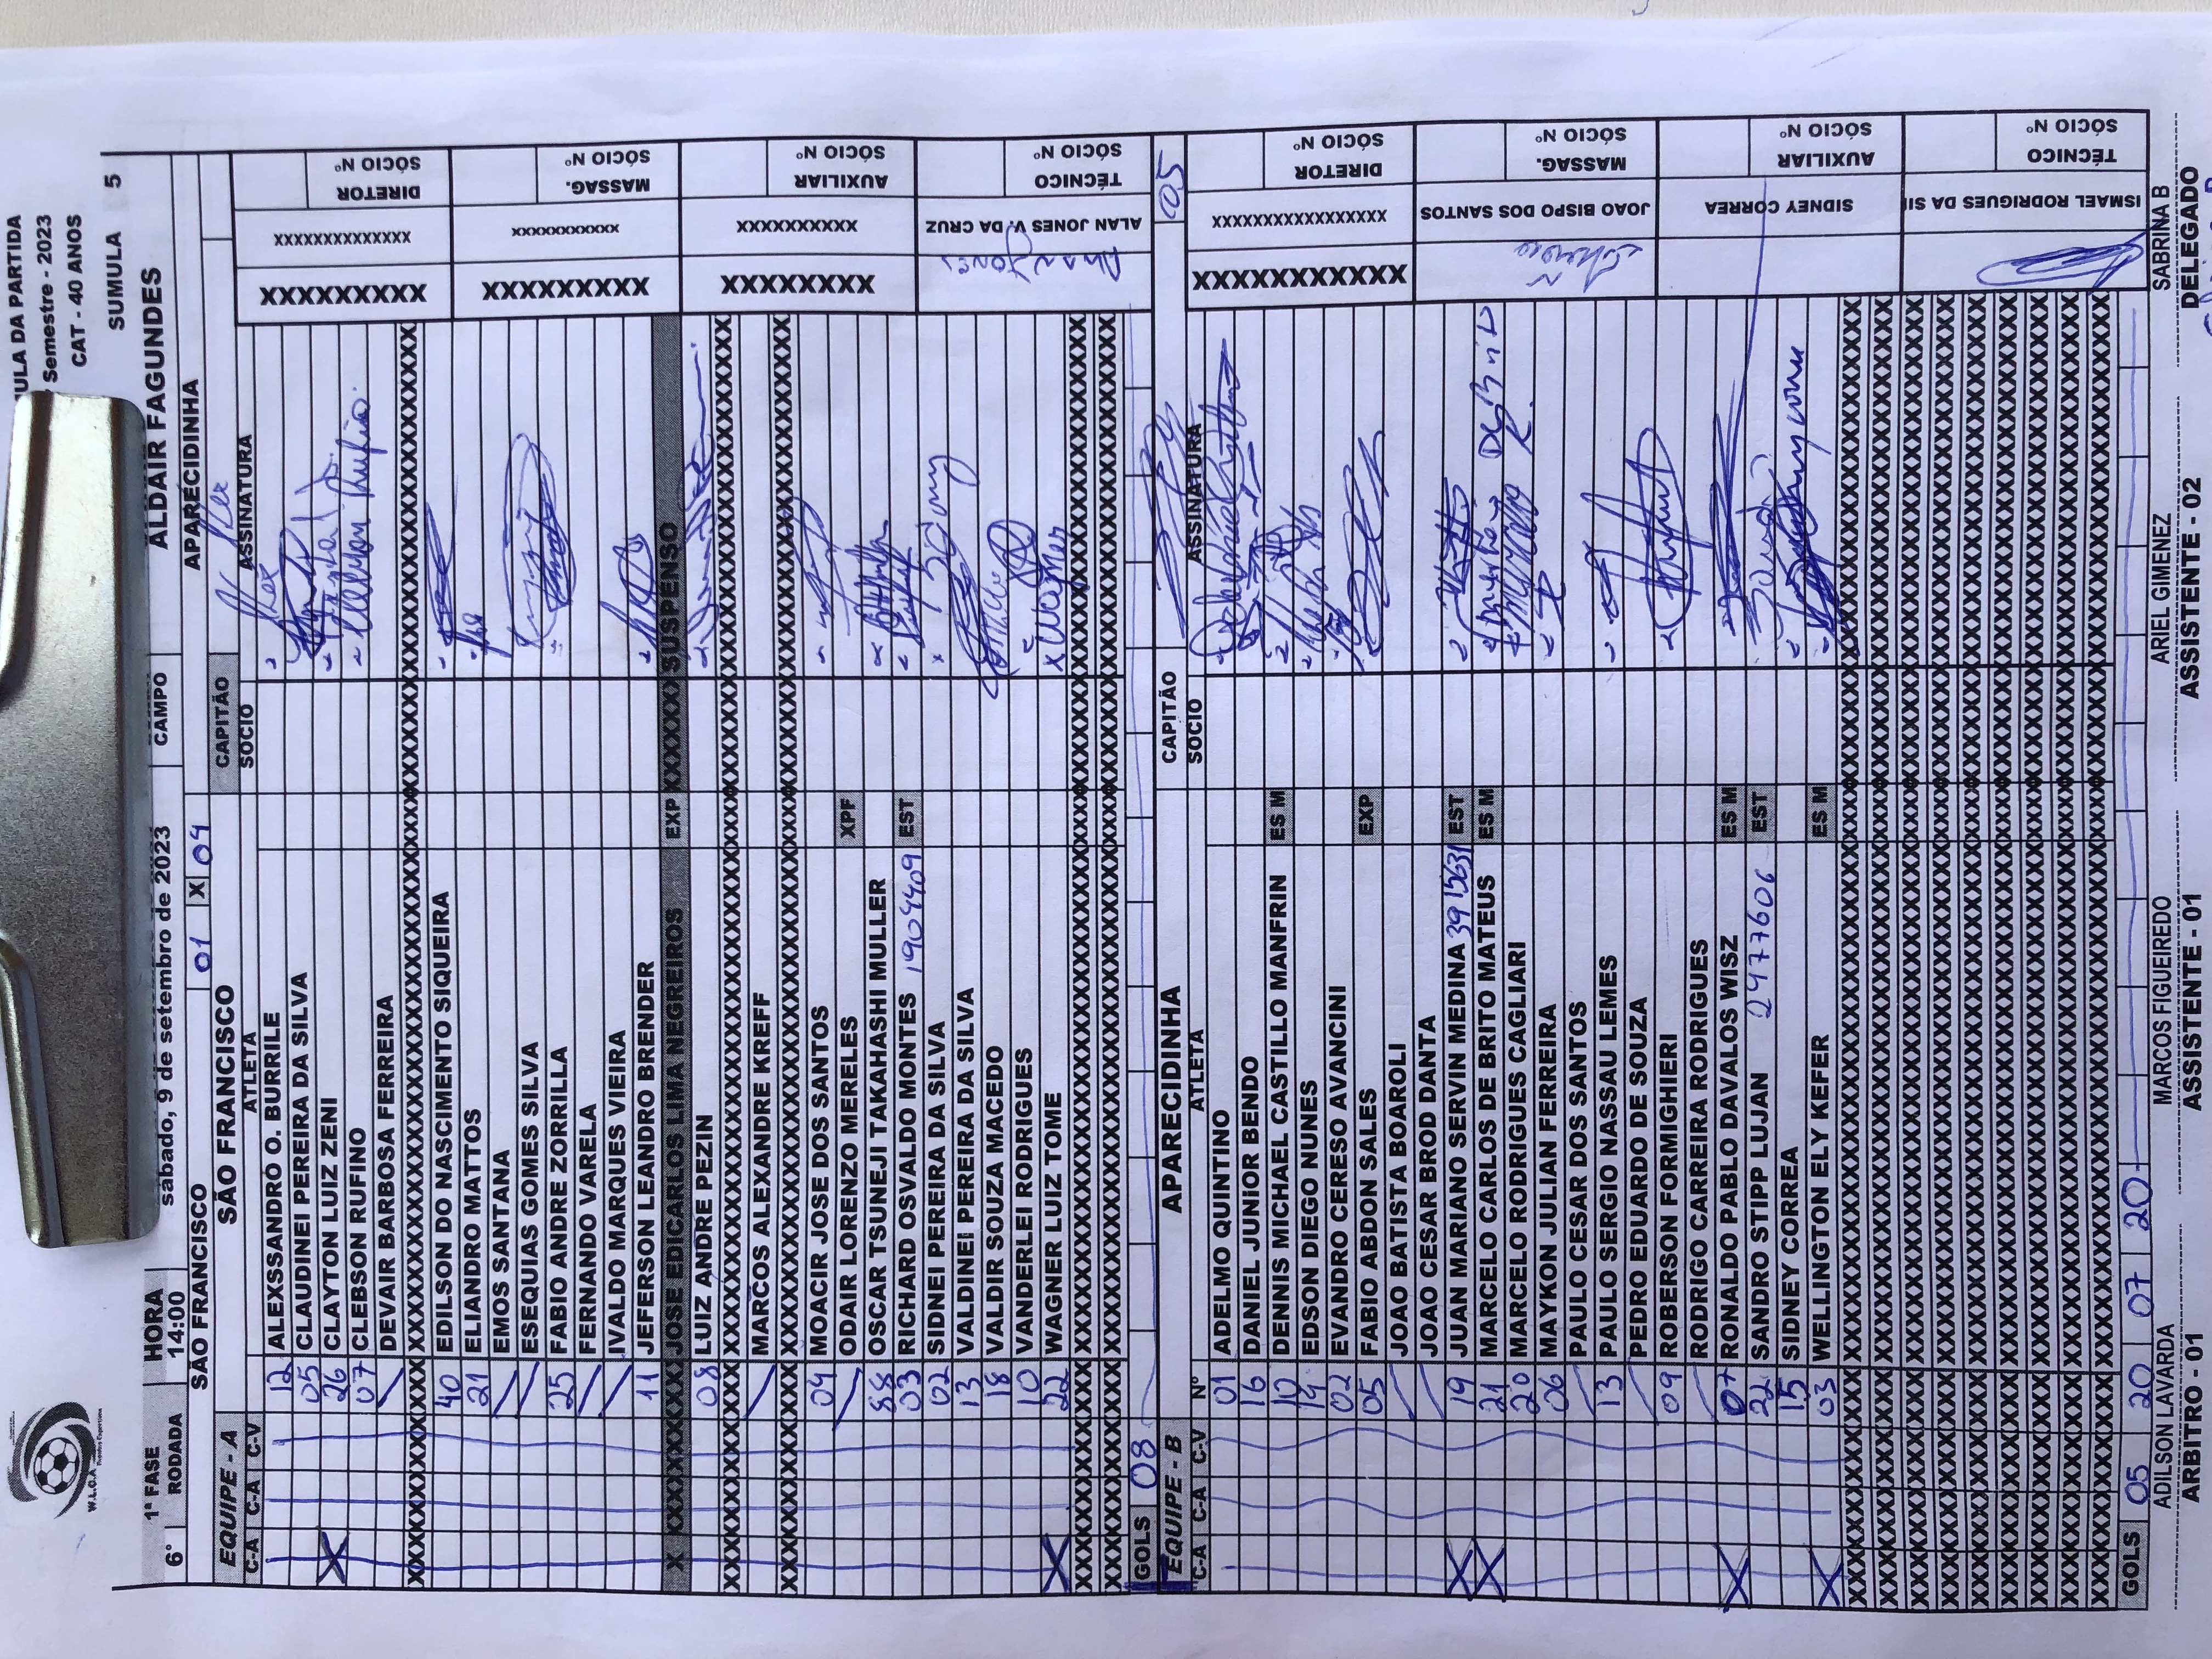 W.L.C.A
ULA DA PARTIDA
Semestre - 2023
CAT - 40 ANOS
SUMULA 5
6° 1ª FASE HORA
RODADA 14:00 sabado, 9 de setembro de 2023 CAMPO ALDAIR FAGUNDES
SÃO FRANCISCO 01 X 04 APARECIDINHA
EQUIPE - A SÃO FRANCISCO CAPITÃO Alex
C-A C-A C-V ATLETA SOCIO ASSINATURA
12 ALEXSSANDRO O. BURRILE Alex
05 CLAUDINEI PEREIRA DA SILVA
X 26 CLAYTON LUIZ ZENI
07 CLEBSON RUFINO Clebson Rufino
/ DEVAIR BARBOSA FERREIRA
XXXXXXXXXXXXXXXXXXXXXXXXXXXXXXXX
40 EDILSON DO NASCIMENTO SIQUEIRA
21 ELIANDRO MATTOS
/ EMOS SANTANA
/ ESEQUIAS GOMES SILVA
25 FABIO ANDRE ZORRILLA
/ FERNANDO VARELA
/ IVALDO MARQUES VIEIRA
11 JEFFERSON LEANDRO BRENDER
X XXXXXXXXX JOSE EDICARLOS LIMA NEGREIROS EXP XXXXXXX SUSPENSO
08 LUIZ ANDRE PEZIN
XXXXXXXXXXXXXXXXXXXXXXXXXXXXXXXX
/ MARCOS ALEXANDRE KREFF
XXXXXXXXXXXXXXXXXXXXXXXXXXXXXXXX
04 MOACIR JOSE DOS SANTOS
/ ODAIR LORENZO MERELES XPF
88 OSCAR TSUNEJI TAKAHASHI MULLER
03 RICHARD OSVALDO MONTES 1904409 EST
02 SIDNEI PEREIRA DA SILVA
13 VALDINEI PEREIRA DA SILVA
18 VALDIR SOUZA MACEDO
10 VANDERLEI RODRIGUES
X 22 WAGNER LUIZ TOME Wagner
XXXXXXXXXXXXXXXXXXXXXXXXXXXXXXXX
XXXXXXXXXXXXXXXXXXXXXXXXXXXXXXXX
GOLS 08
DIRETOR SÓCIO Nº XXXXXXXXXXXXXX XXXXXXXXX
MASSAG. SÓCIO Nº XXXXXXXXXXX XXXXXXXXX
AUXILIAR SÓCIO Nº XXXXXXXXXX XXXXXXXX
TÉCNICO SÓCIO Nº ALAN JONES V. DA CRUZ Alan Jones
EQUIPE - B APARECIDINHA CAPITÃO 05
C-A C-A C-V Nº ATLETA SOCIO ASSINATURA
01 ADELMO QUINTINO
16 DANIEL JUNIOR BENDO
10 DENNIS MICHAEL CASTILLO MANFRIN ES M
14 EDSON DIEGO NUNES
02 EVANDRO CERESO AVANCINI
05 FABIO ABDON SALES EXP
/ JOAO BATISTA BOAROLI
/ JOAO CESAR BROD DANTA
X 19 JUAN MARIANO SERVIN MEDINA 3915631 EST
X 21 MARCELO CARLOS DE BRITO MATEUS ES M
20 MARCELO RODRIGUES CAGLIARI
06 MAYKON JULIAN FERREIRA
/ PAULO CESAR DOS SANTOS
13 PAULO SERGIO NASSAU LEMES
/ PEDRO EDUARDO DE SOUZA
09 ROBERSON FORMIGHIERI
/ RODRIGO CARREIRA RODRIGUES
X 07 RONALDO PABLO DAVALOS WISZ ES M
22 SANDRO STIPP LUJAN 2477606 EST
15 SIDNEY CORREA
X 03 WELLINGTON ELY KEFER ES M
XXXXXXXXXXXXXXXXXXXXXXXXXXXXXXXX
XXXXXXXXXXXXXXXXXXXXXXXXXXXXXXXX
XXXXXXXXXXXXXXXXXXXXXXXXXXXXXXXX
XXXXXXXXXXXXXXXXXXXXXXXXXXXXXXXX
XXXXXXXXXXXXXXXXXXXXXXXXXXXXXXXX
XXXXXXXXXXXXXXXXXXXXXXXXXXXXXXXX
XXXXXXXXXXXXXXXXXXXXXXXXXXXXXXXX
XXXXXXXXXXXXXXXXXXXXXXXXXXXXXXXX
XXXXXXXXXXXXXXXXXXXXXXXXXXXXXXXX
GOLS 05 20 07 20
DIRETOR SÓCIO Nº XXXXXXXXXXXXXXXXX XXXXXXXXXXX
MASSAG. SÓCIO Nº JOAO BISPO DOS SANTOS
AUXILIAR SÓCIO Nº SIDNEY CORREA
TÉCNICO SÓCIO Nº ISMAEL RODRIGUES DA SI
ADILSON LAVARDA MARCOS FIGUEIREDO ARIEL GIMENEZ SABRINA B
ARBITRO - 01 ASSISTENTE - 01 ASSISTENTE - 02 DELEGADO